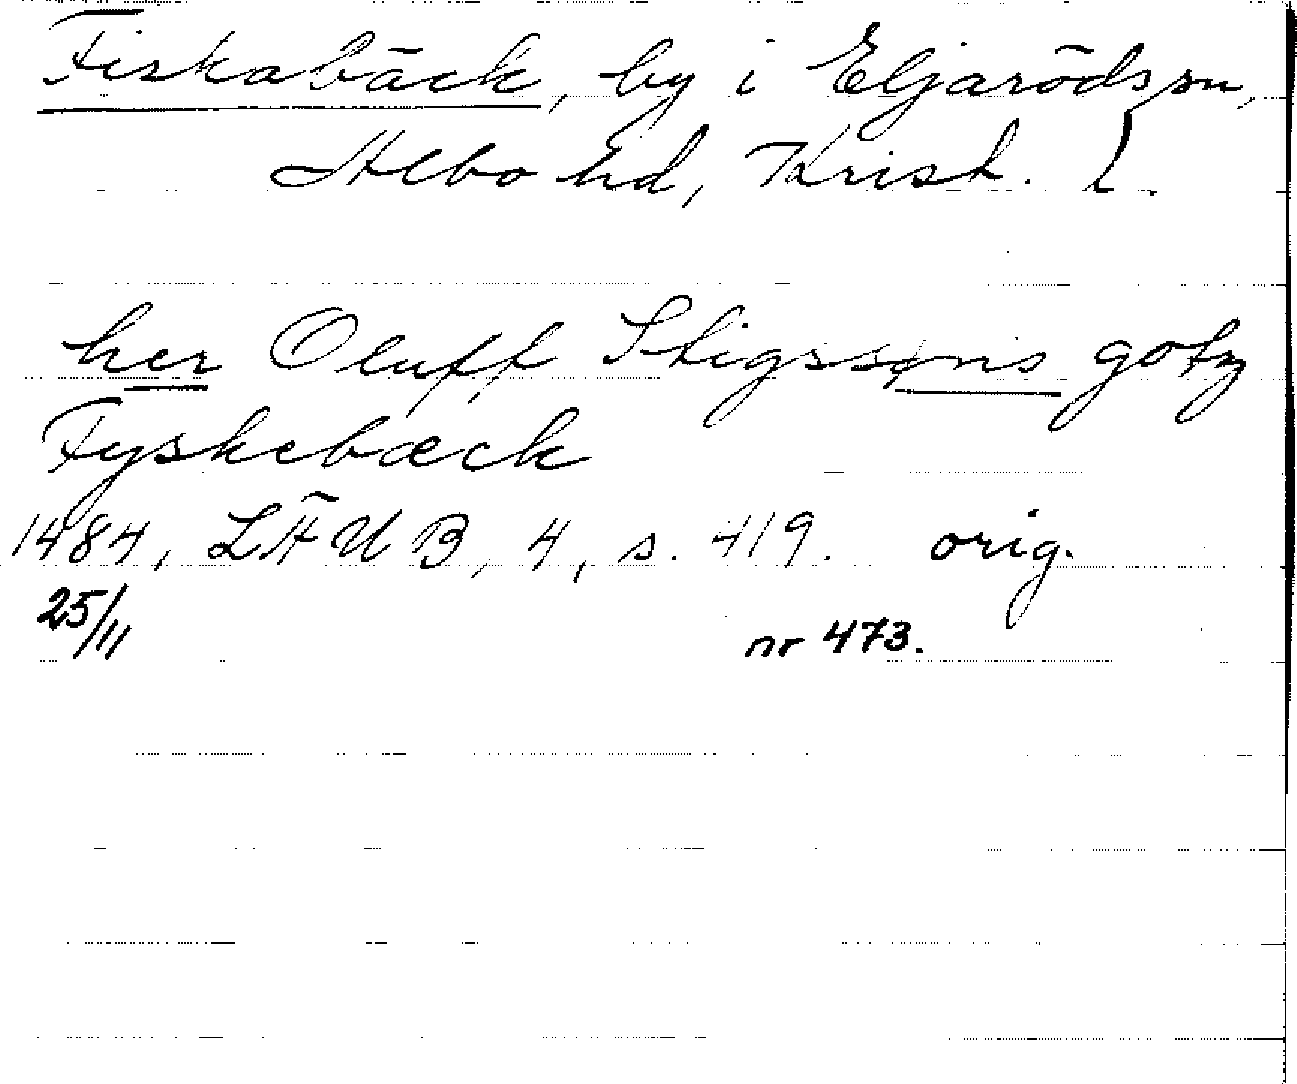 Fiskabäck, by i Eljarödssn,
Albo hd, Krist. l.
her Oluff Stigssøns gotz
Fyskebæck
1484, LÄUB, 4, s. 419. orig.
25/11
nr 473.